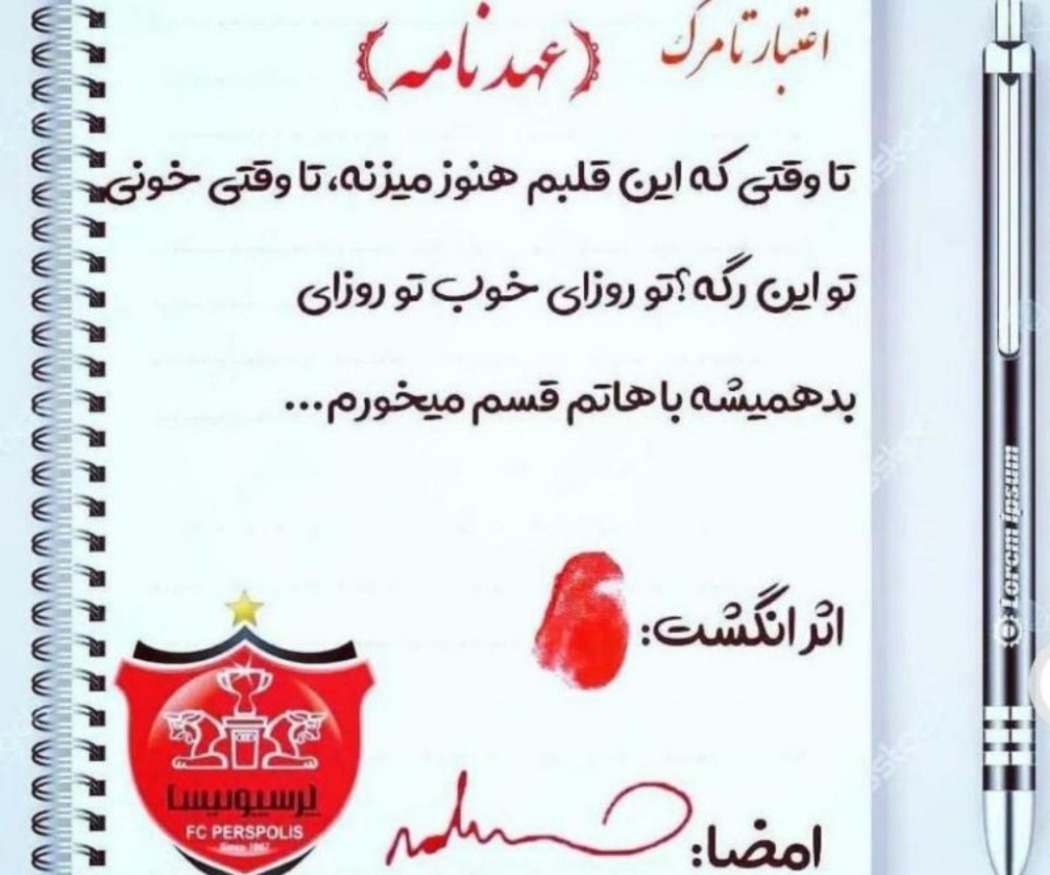 اعتبار تا مرگ
(عهد نامه)
تا وقتی که این قلبم هنوز میزنه، تا وقتی خونی
تو این رگه؟تو روزای خوب تو روزای
بدهمیشه باهاتم قسم میخورم...
اثر انگشت:
پرسپولیس
FC PERSPOLIS
Since 1967
امضا:
Lorem ipsum